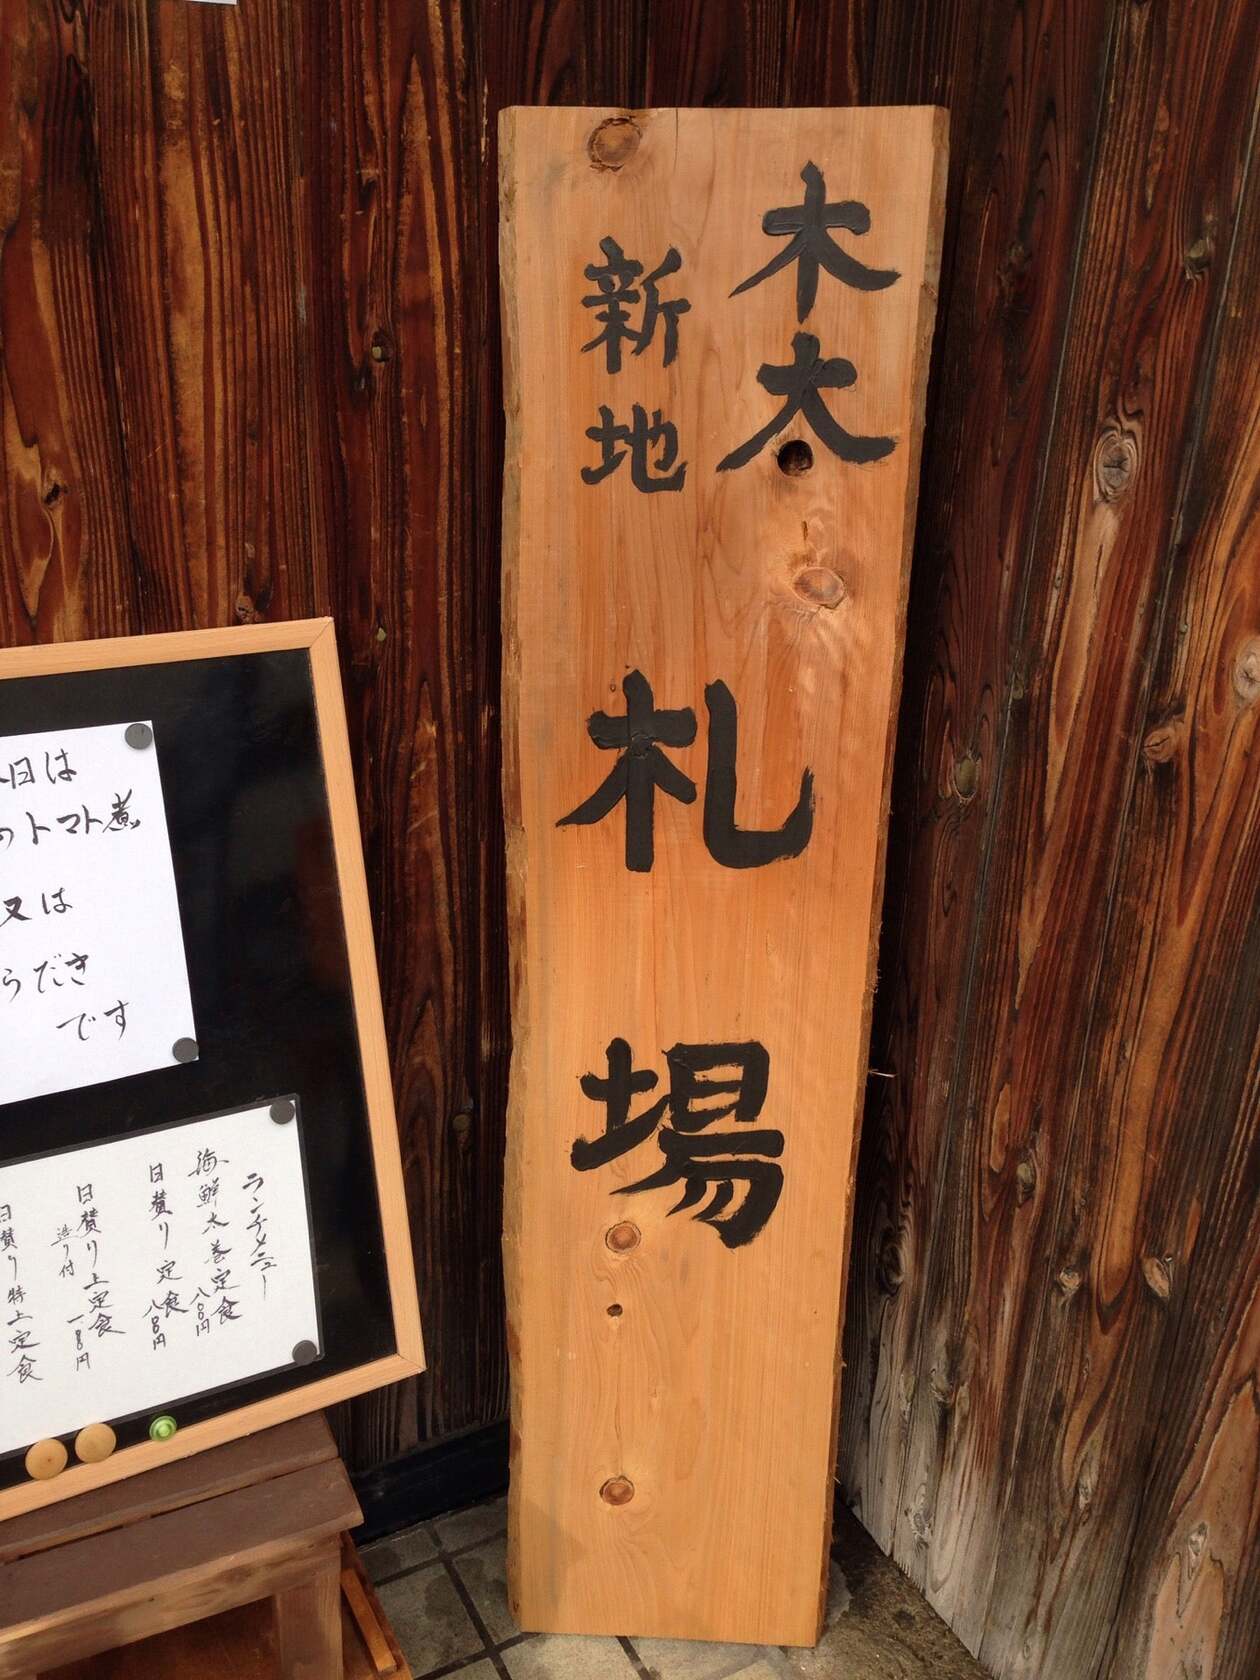 木太
新地
札場
日は
のトマト煮
又は
らだき
です
ランチメニュー
海鮮太巻定食 八〇〇円
日替り定食 八〇〇円
日替り上定食
造り付
日替り特上定食